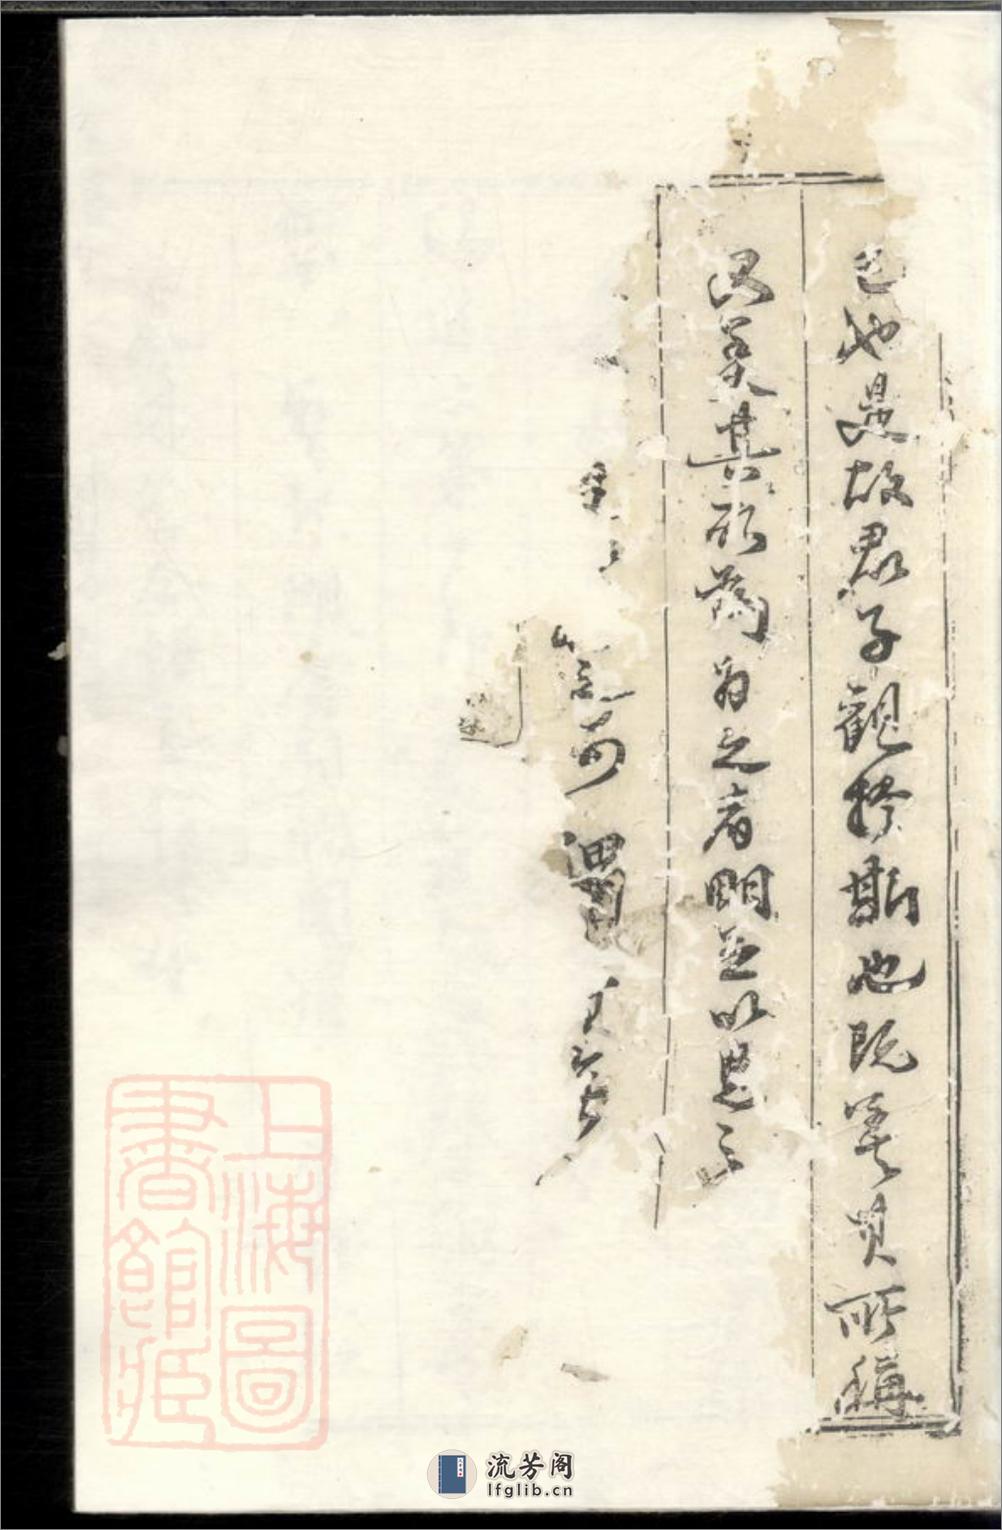 已也是故君子觀於斯也既美其所稱
又美其所為為之者明足以見之
可謂
上海圖書館藏
流芳阁
lfglib.cn